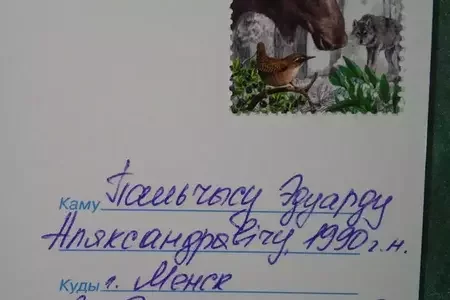 Каму Пальчысу Эдуарду
Аляксандравічу, 1990 г.н.
Куды г. Менск